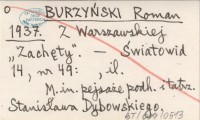 BURZYŃSKI Roman
1937. Z Warszawskiej
„Zachęty". — Światowid
14, nr 49: , il.
M.in. pejzaże podh. i tatrz.
Stanisława Dybowskiego.